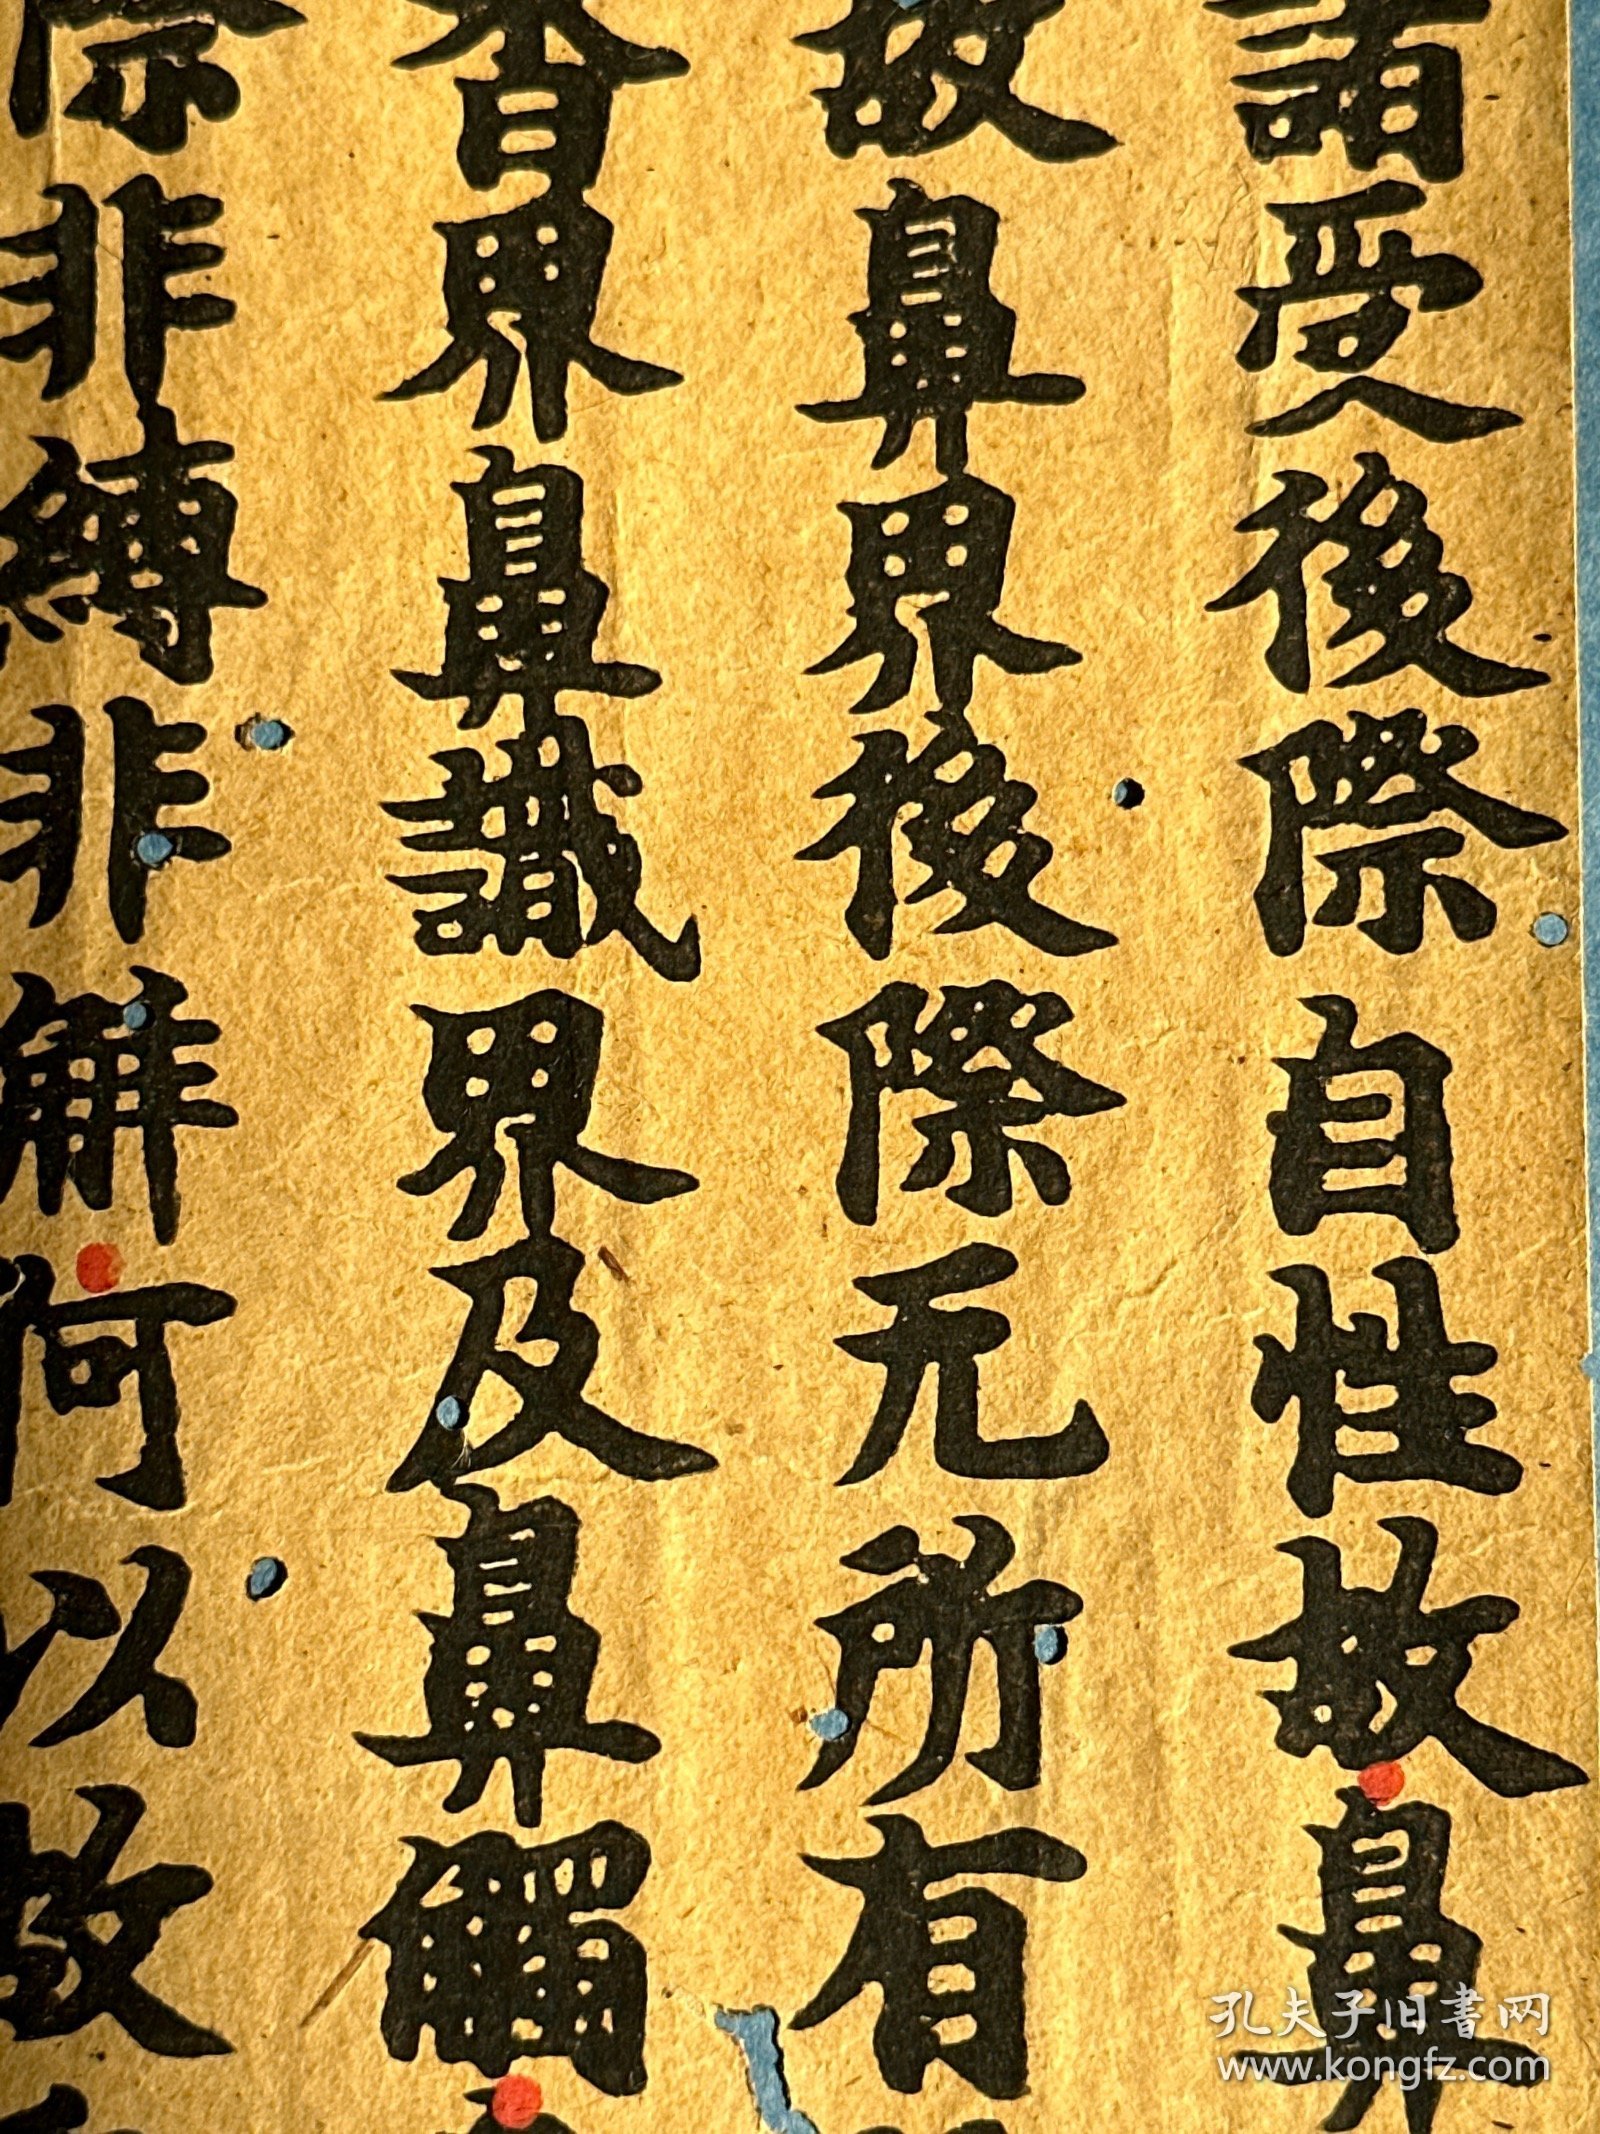 諸受後際自性故鼻
故鼻界後際无所有
香界鼻識界及鼻觸
際非縛非解何以故
孔夫子旧書网
www.kongfz.com